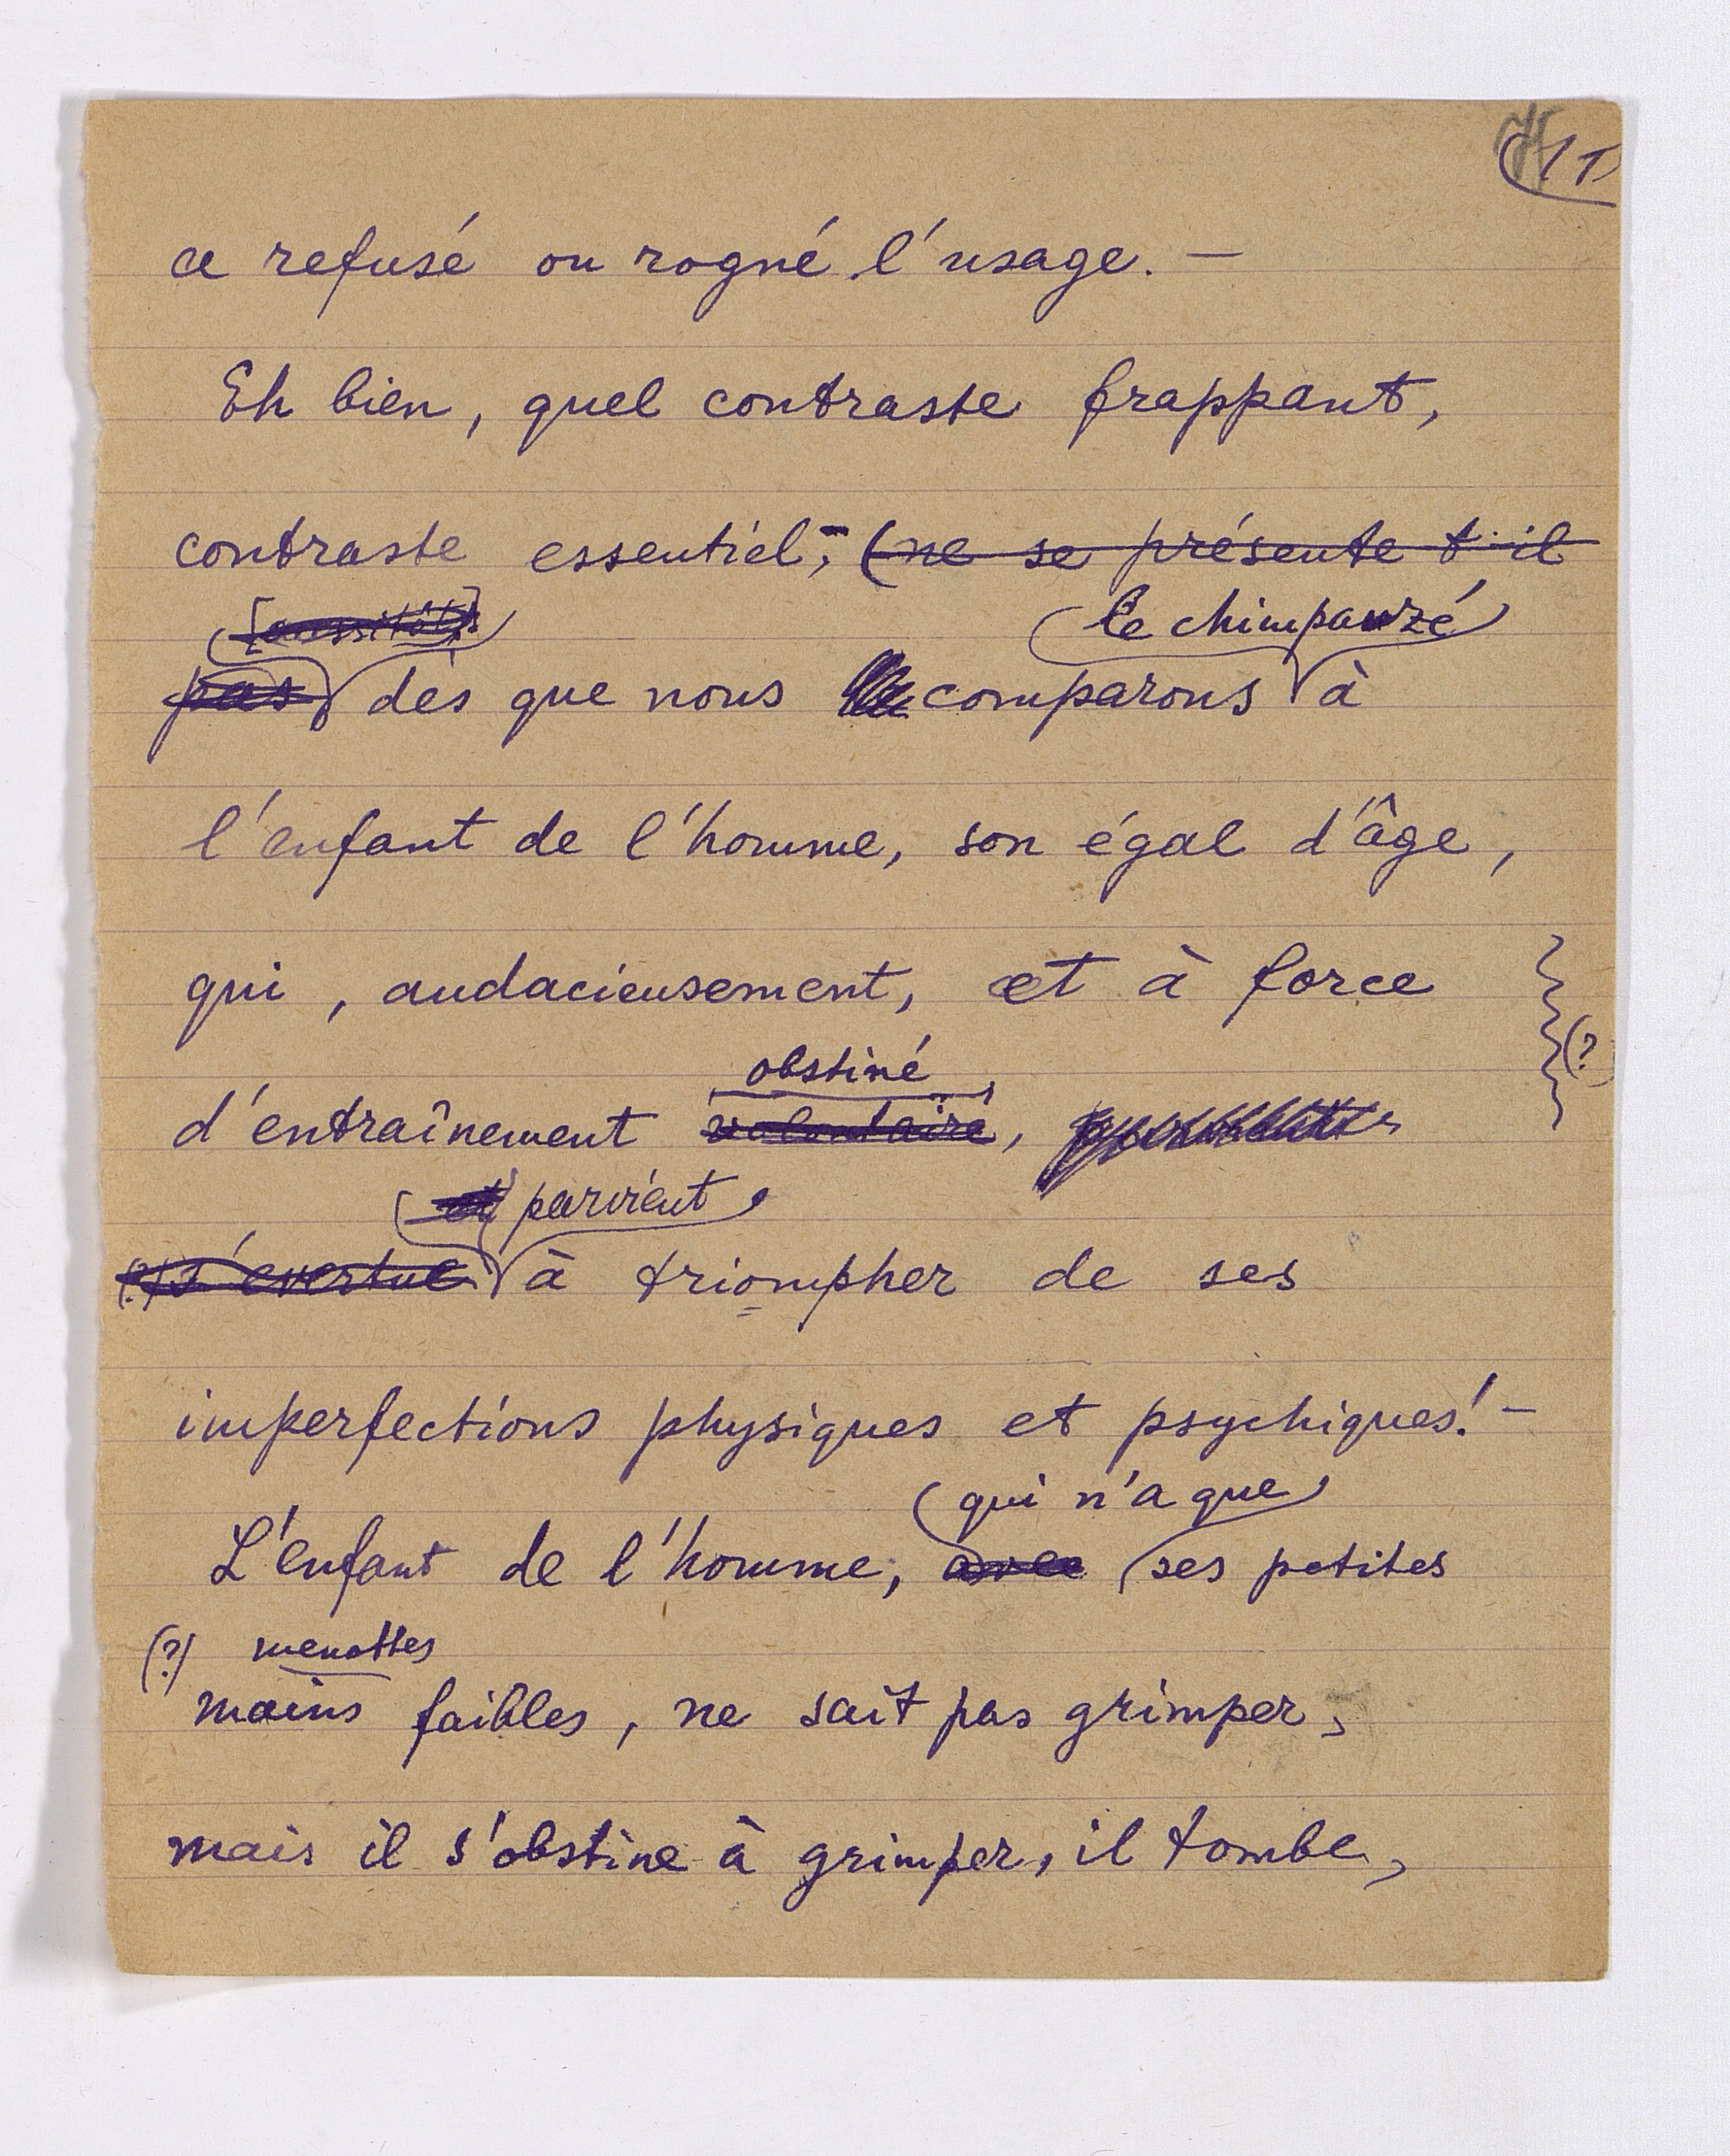 11
a refusé ou rogné l'usage. —
Eh bien, quel contraste frappant,
contraste essentiel, (ne se présente t-il
[aussitôt] le chimpanzé
pas dès que nous comparons à
l'enfant de l'homme, son égal d'âge,
qui, audacieusement, et à force
(?)
obstiné
d'entraînement volontaire,
et parvient
(?) s'évertue à triompher de ses
imperfections physiques et psychiques! —
qui n'a que
L'enfant de l'homme, avec ses petites
(?) menottes
mains faibles, ne sait pas grimper,
mais il s'obstine à grimper, il tombe,